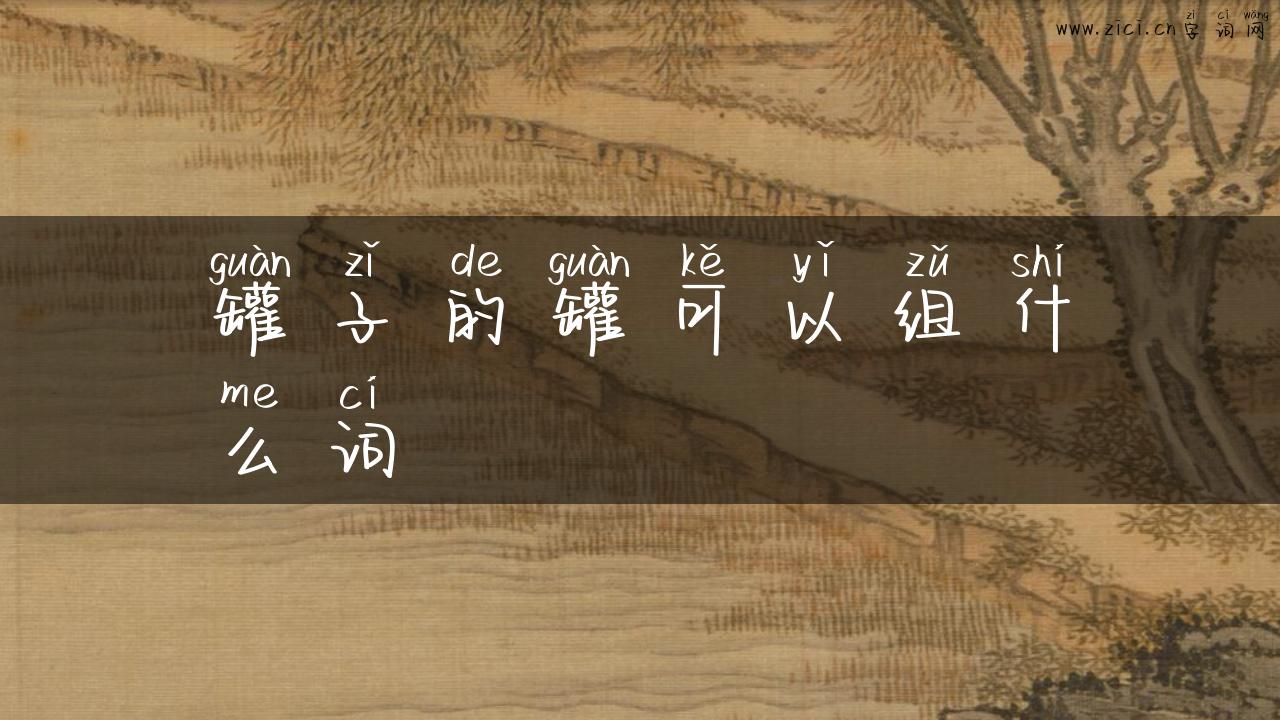 zì cí wǎng
www.zici.cn字词网
guàn zǐ de guàn kě yǐ zǔ shí
罐子的罐可以组什
me cí
么词